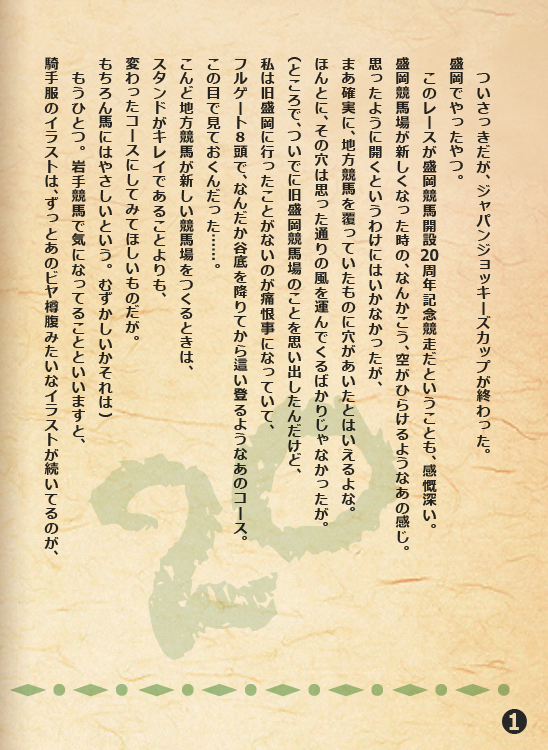 ついさっきだが、ジャパンジョッキーズカップが終わった。
盛岡でやったやつ。
このレースが盛岡競馬開設20周年記念競走だということも、感慨深い。
盛岡競馬場が新しくなった時の、なんかこう、空がひらけるようなあの感じ。
思ったように開くというわけにはいかなかったが、
まあ確実に、地方競馬を覆っていたものに穴があいたとはいえるよな。
ほんとに、その穴は思った通りの風を運んでくるばかりじゃなかったが。
(ところで、ついでに旧盛岡競馬場のことを思い出したんだけど、
私は旧盛岡に行ったことがないのが痛恨事になっていて、
フルゲート8頭で、なんだか谷底を降りてから這い登るようなあのコース。
この目で見ておくんだった……。
こんど地方競馬が新しい競馬場をつくるときは、
スタンドがキレイであることよりも、
変わったコースにしてみてほしいものだが。
もちろん馬にはやさしいという。むずかしいかそれは)
もうひとつ。岩手競馬で気になってることといいますと、
騎手服のイラストは、ずっとあのビヤ樽腹みたいなイラストが続いてるのが、
20
1